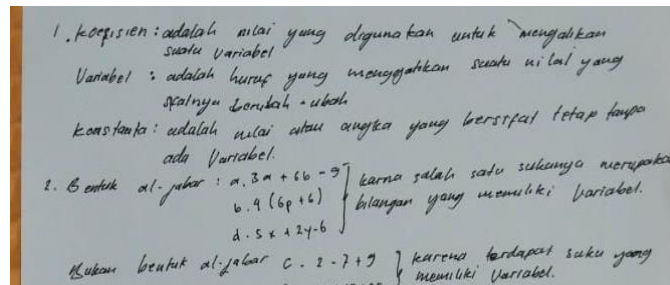 1. Koefisien : adalah nilai yang digunakan untuk mengalikan
suatu variabel
Variabel : adalah huruf yang menggantikan suatu nilai yang
sifatnya berubah-ubah
Konstanta : adalah nilai atau angka yang bersifat tetap tanpa
ada Variabel.
2. Bentuk al-jabar : a. 3a + 6b - 9
karna salah satu sukunya merupaka
b. 9 (6p + 6)
bilangan yang memiliki Variabel.
d. 5x + 2y - 6
Bukan bentuk al-jabar c. 2 - 7 + 9
karena terdapat suku yang
memiliki Variabel.